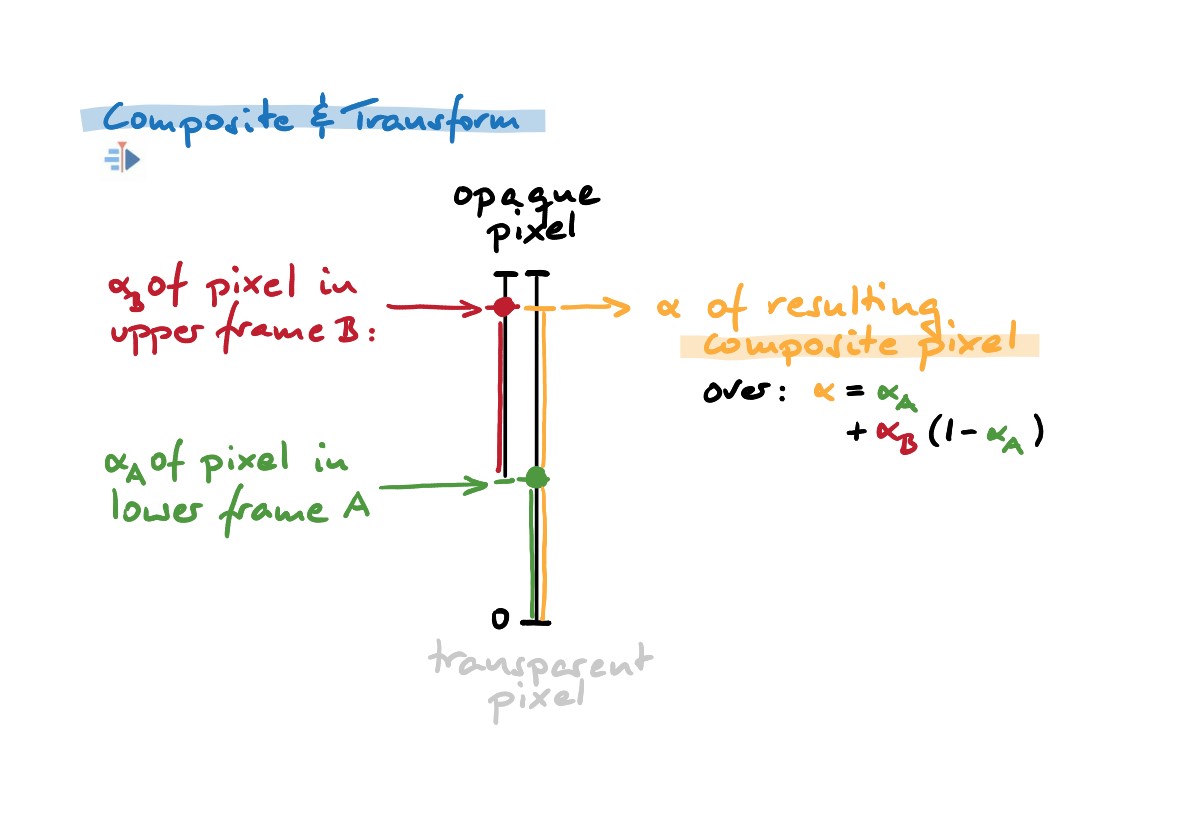 Composite & Transform
opaque
pixel
αB of pixel in
upper frame B:
α of resulting
composite pixel
over: α = αA
+ αB (1 - αA)
αA of pixel in
lower frame A
0
transparent
pixel